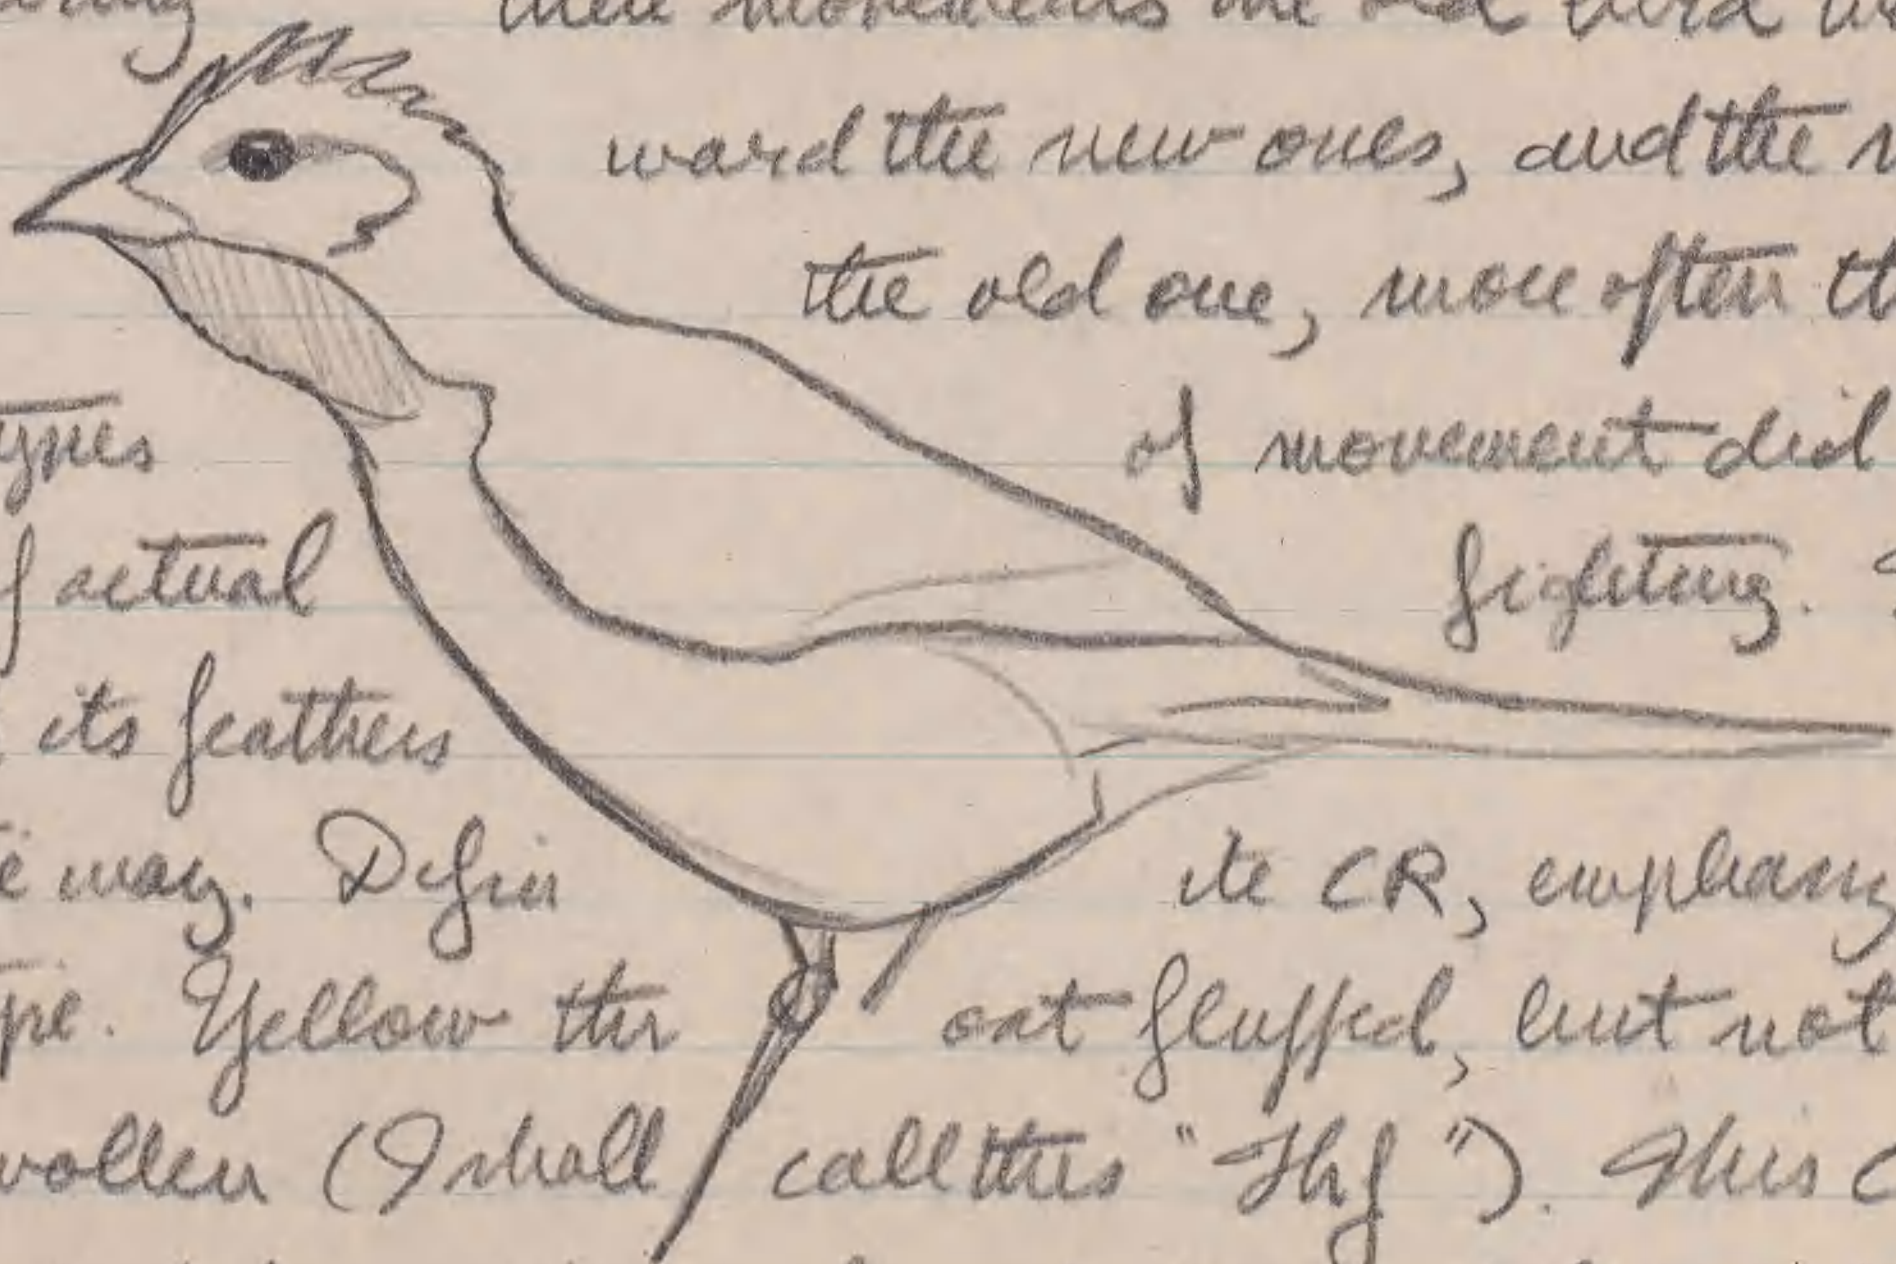 these movements the old bird
ward the new ones, and the
the old one, more often
types of movement did
actual fighting.
its feathers
way. Defin ite CR,
Yellow thr oat fluffed, but not
(I shall call this "Thf"). This